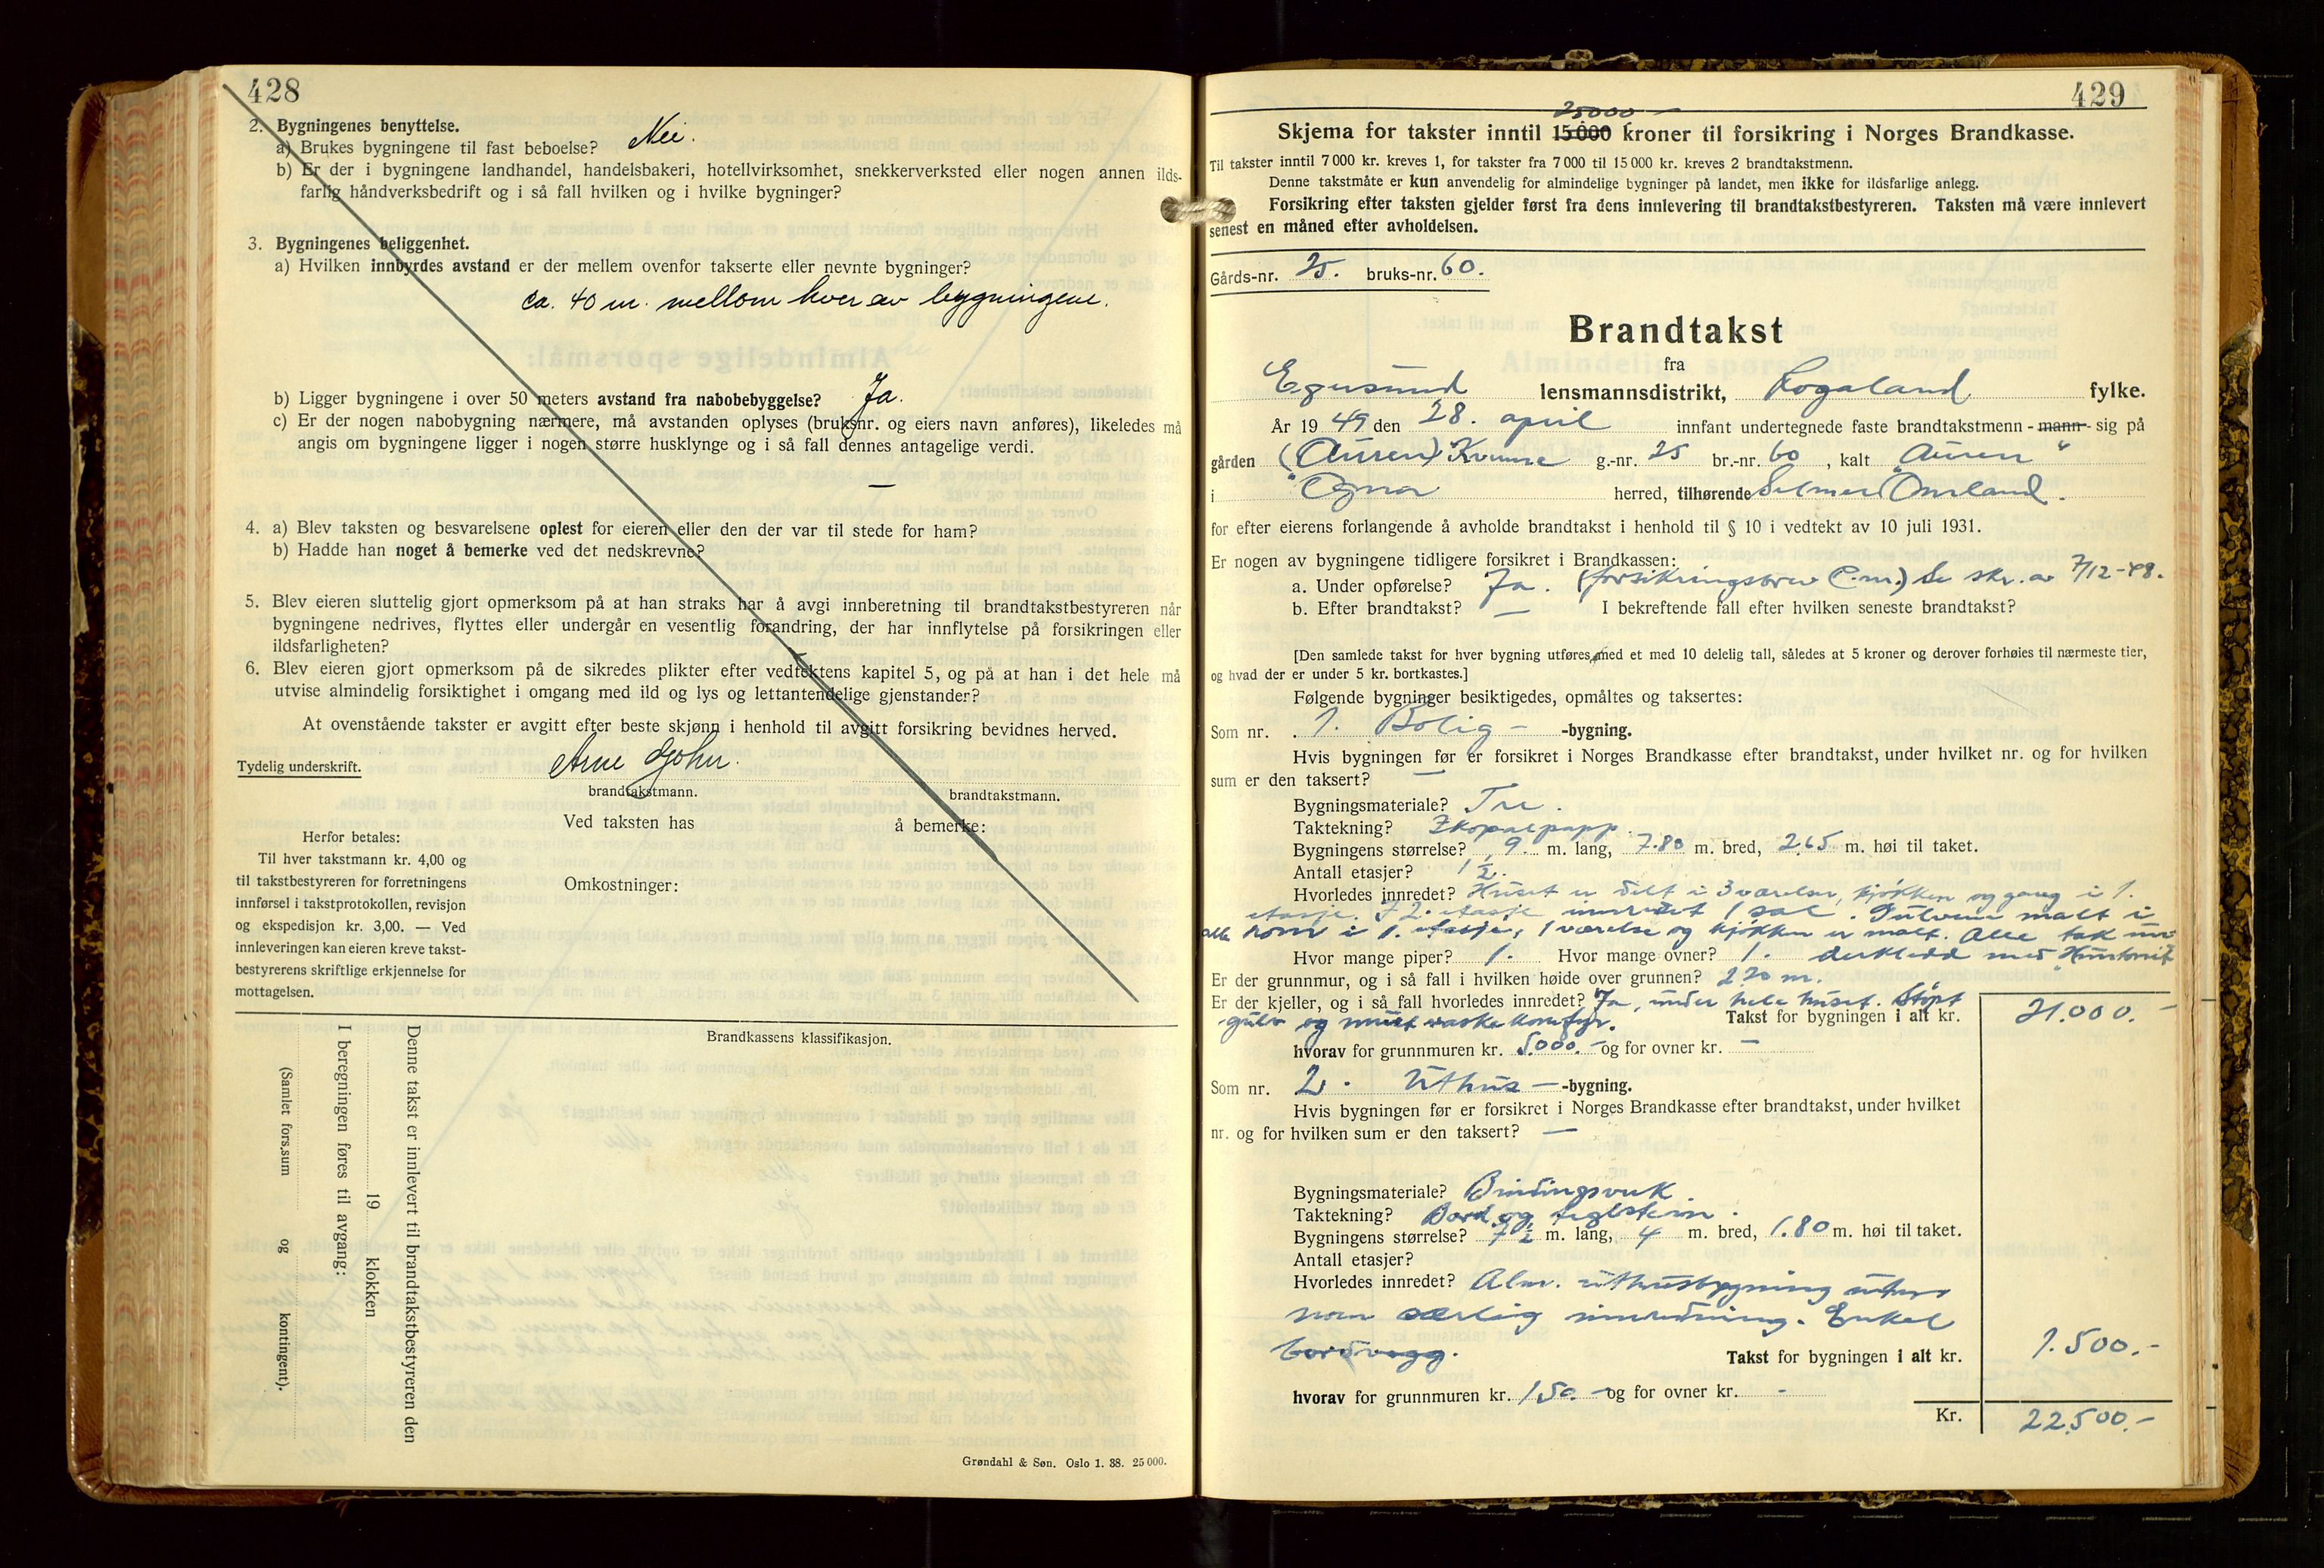 428
2. Bygningenes benyttelse.
a) Brukes bygningene til fast beboelse? Nei.
b) Er der i bygningene landhandel, handelsbakeri, hotellvirksomhet, snekkerverksted eller nogen annen ilds-
farlig håndverksbedrift og i så fall hvilken og i hvilke bygninger?
3. Bygningenes beliggenhet.
a) Hvilken innbyrdes avstand er der mellem ovenfor takserte eller nevnte bygninger?
ca. 40 m. mellom hver av bygningene.
b) Ligger bygningene i over 50 meters avstand fra nabobebyggelse? Ja.
c) Er der nogen nabobygning nærmere, må avstanden oplyses (bruksnr. og eiers navn anføres), likeledes må
angis om bygningene ligger i nogen større husklynge og i så fall dennes antagelige verdi.
—
4. a) Blev taksten og besvarelsene oplest for eieren eller den der var til stede for ham?
b) Hadde han noget å bemerke ved det nedskrevne?
5. Blev eieren sluttelig gjort opmerksom på at han straks har å avgi innberetning til brandtakstbestyreren når
bygningene nedrives, flyttes eller undergår en vesentlig forandring, der har innflytelse på forsikringen eller
ildsfarligheten?
6. Blev eieren gjort opmerksom på de sikredes plikter efter vedtektens kapitel 5, og på at han i det hele må
utvise almindelig forsiktighet i omgang med ild og lys og lettantendelige gjenstander?
At ovenstående takster er avgitt efter beste skjønn i henhold til avgitt forsikring bevidnes herved.
Tydelig underskrift. Arne
brandtakstmann. brandtakstmann.
Ved taksten has å bemerke:
Herfor betales:
Til hver takstmann kr. 4,00 og
til takstbestyreren for forretningens
innførsel i takstprotokollen, revisjon
og ekspedisjon kr. 3,00. — Ved
innleveringen kan eieren kreve takst-
bestyrerens skriftlige erkjennelse for
mottagelsen.
Omkostninger:
Brandkassens klassifikasjon.
Denne takst er innlevert til brandtakstbestyreren den
19 klokken
I beregningen føres til avgang:
(Samlet fors.sum og kontingent).
Grøndahl & Søn. Oslo 1. 38. 25 000.
429
25000 —
Skjema for takster inntil 15 000 kroner til forsikring i Norges Brandkasse.
Til takster inntil 7 000 kr. kreves 1, for takster fra 7 000 til 15 000 kr. kreves 2 brandtakstmenn.
Denne takstmåte er kun anvendelig for almindelige bygninger på landet, men ikke for ildsfarlige anlegg.
Forsikring efter taksten gjelder først fra dens innlevering til brandtakstbestyreren. Taksten må være innlevert
senest en måned efter avholdelsen.
Gårds-nr. 25. bruks-nr. 60.
Brandtakst
fra
Egersund lensmannsdistrikt, Rogaland fylke.
År 1949 den 28. april innfant undertegnede faste brandtakstmenn - mann - sig på
gården (Auren) g.-nr. 25 br.-nr. 60, kalt "Auren"
i Ogna herred, tilhørende Selmer Omland.
for efter eierens forlangende å avholde brandtakst i henhold til § 10 i vedtekt av 10 juli 1931.
Er nogen av bygningene tidligere forsikret i Brandkassen:
a. Under opførelse? Ja. (forsikringsbrev Se skr. av 7/12-48.
b. Efter brandtakst? — I bekreftende fall efter hvilken seneste brandtakst?
[Den samlede takst for hver bygning utføres med et med 10 delelig tall, således at 5 kroner og derover forhøies til nærmeste tier,
og hvad der er under 5 kr. bortkastes.]
Følgende bygninger besiktigedes, opmåltes og taksertes:
Som nr. 1. Bolig — -bygning.
Hvis bygningen før er forsikret i Norges Brandkasse efter brandtakst, under hvilket nr. og for hvilken
sum er den taksert? —
Bygningsmateriale? Tre.
Taktekning?
Bygningens størrelse? 9 m. lang, 7.80 m. bred, 2,65 m. høi til taket.
Antall etasjer? 1½.
Hvorledes innredet? Huset er delt i 3 værelser, kjøkken og gang i 1.
etasje. I 2. etasje innredet 1 sal. Gulvene malt i
alle rom i 1. etasje, 1 værelse og kjøkken er malt. Alle tak
Hvor mange piper? 1. Hvor mange ovner? 1. med "Huntonit"
Er der grunnmur, og i så fall i hvilken høide over grunnen? 2.20 m.
Er der kjeller, og i så fall hvorledes innredet? Ja, under hele huset. Støpt
gulv og Takst for bygningen i alt kr. 21.000.—
hvorav for grunnmuren kr. 5.000.— og for ovner kr. —
Som nr. 2. Uthus — -bygning.
Hvis bygningen før er forsikret i Norges Brandkasse efter brandtakst, under hvilket
nr. og for hvilken sum er den taksert? —
Bygningsmateriale? Bindingsverk.
Taktekning? Bord og teglstein.
Bygningens størrelse? 7½ m. lang, 4 m. bred, 1.80 m. høi til taket.
Antall etasjer?
Hvorledes innredet? Alm. uthusbygning uten
noen særlig innredning. Enkel
bordvegg. Takst for bygningen i alt kr. 1.500.—
hvorav for grunnmuren kr. 150.— og for ovner kr. -
Kr. 22.500.—